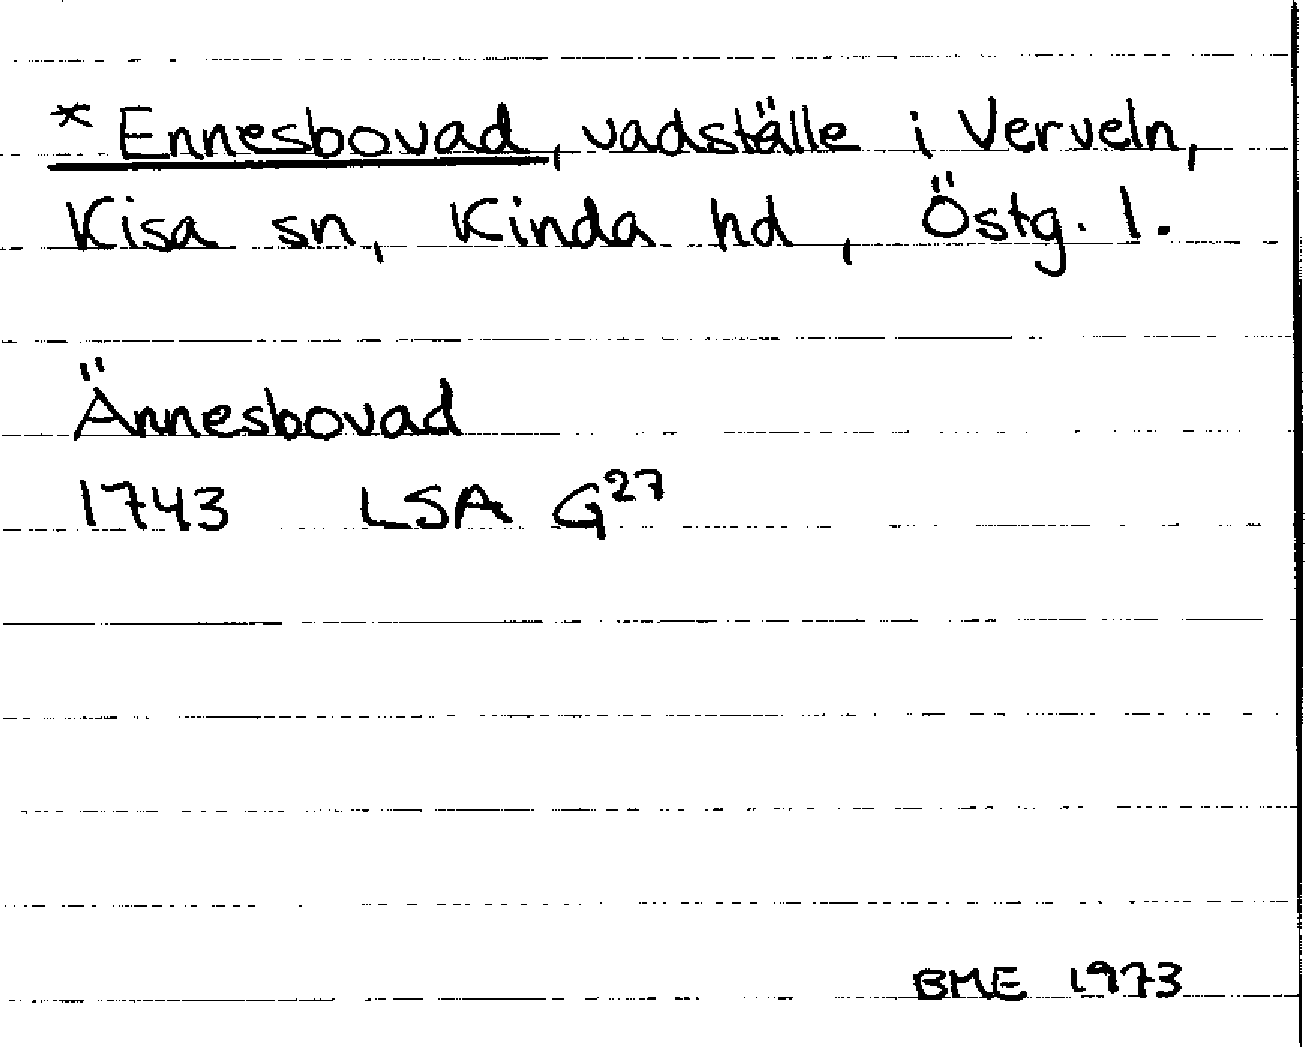 * Ennesbovad, vadställe i Verveln,
Kisa sn, Kinda hd, Östg. l.
Ännesbovad
1743 LSA G²⁷
BME 1973